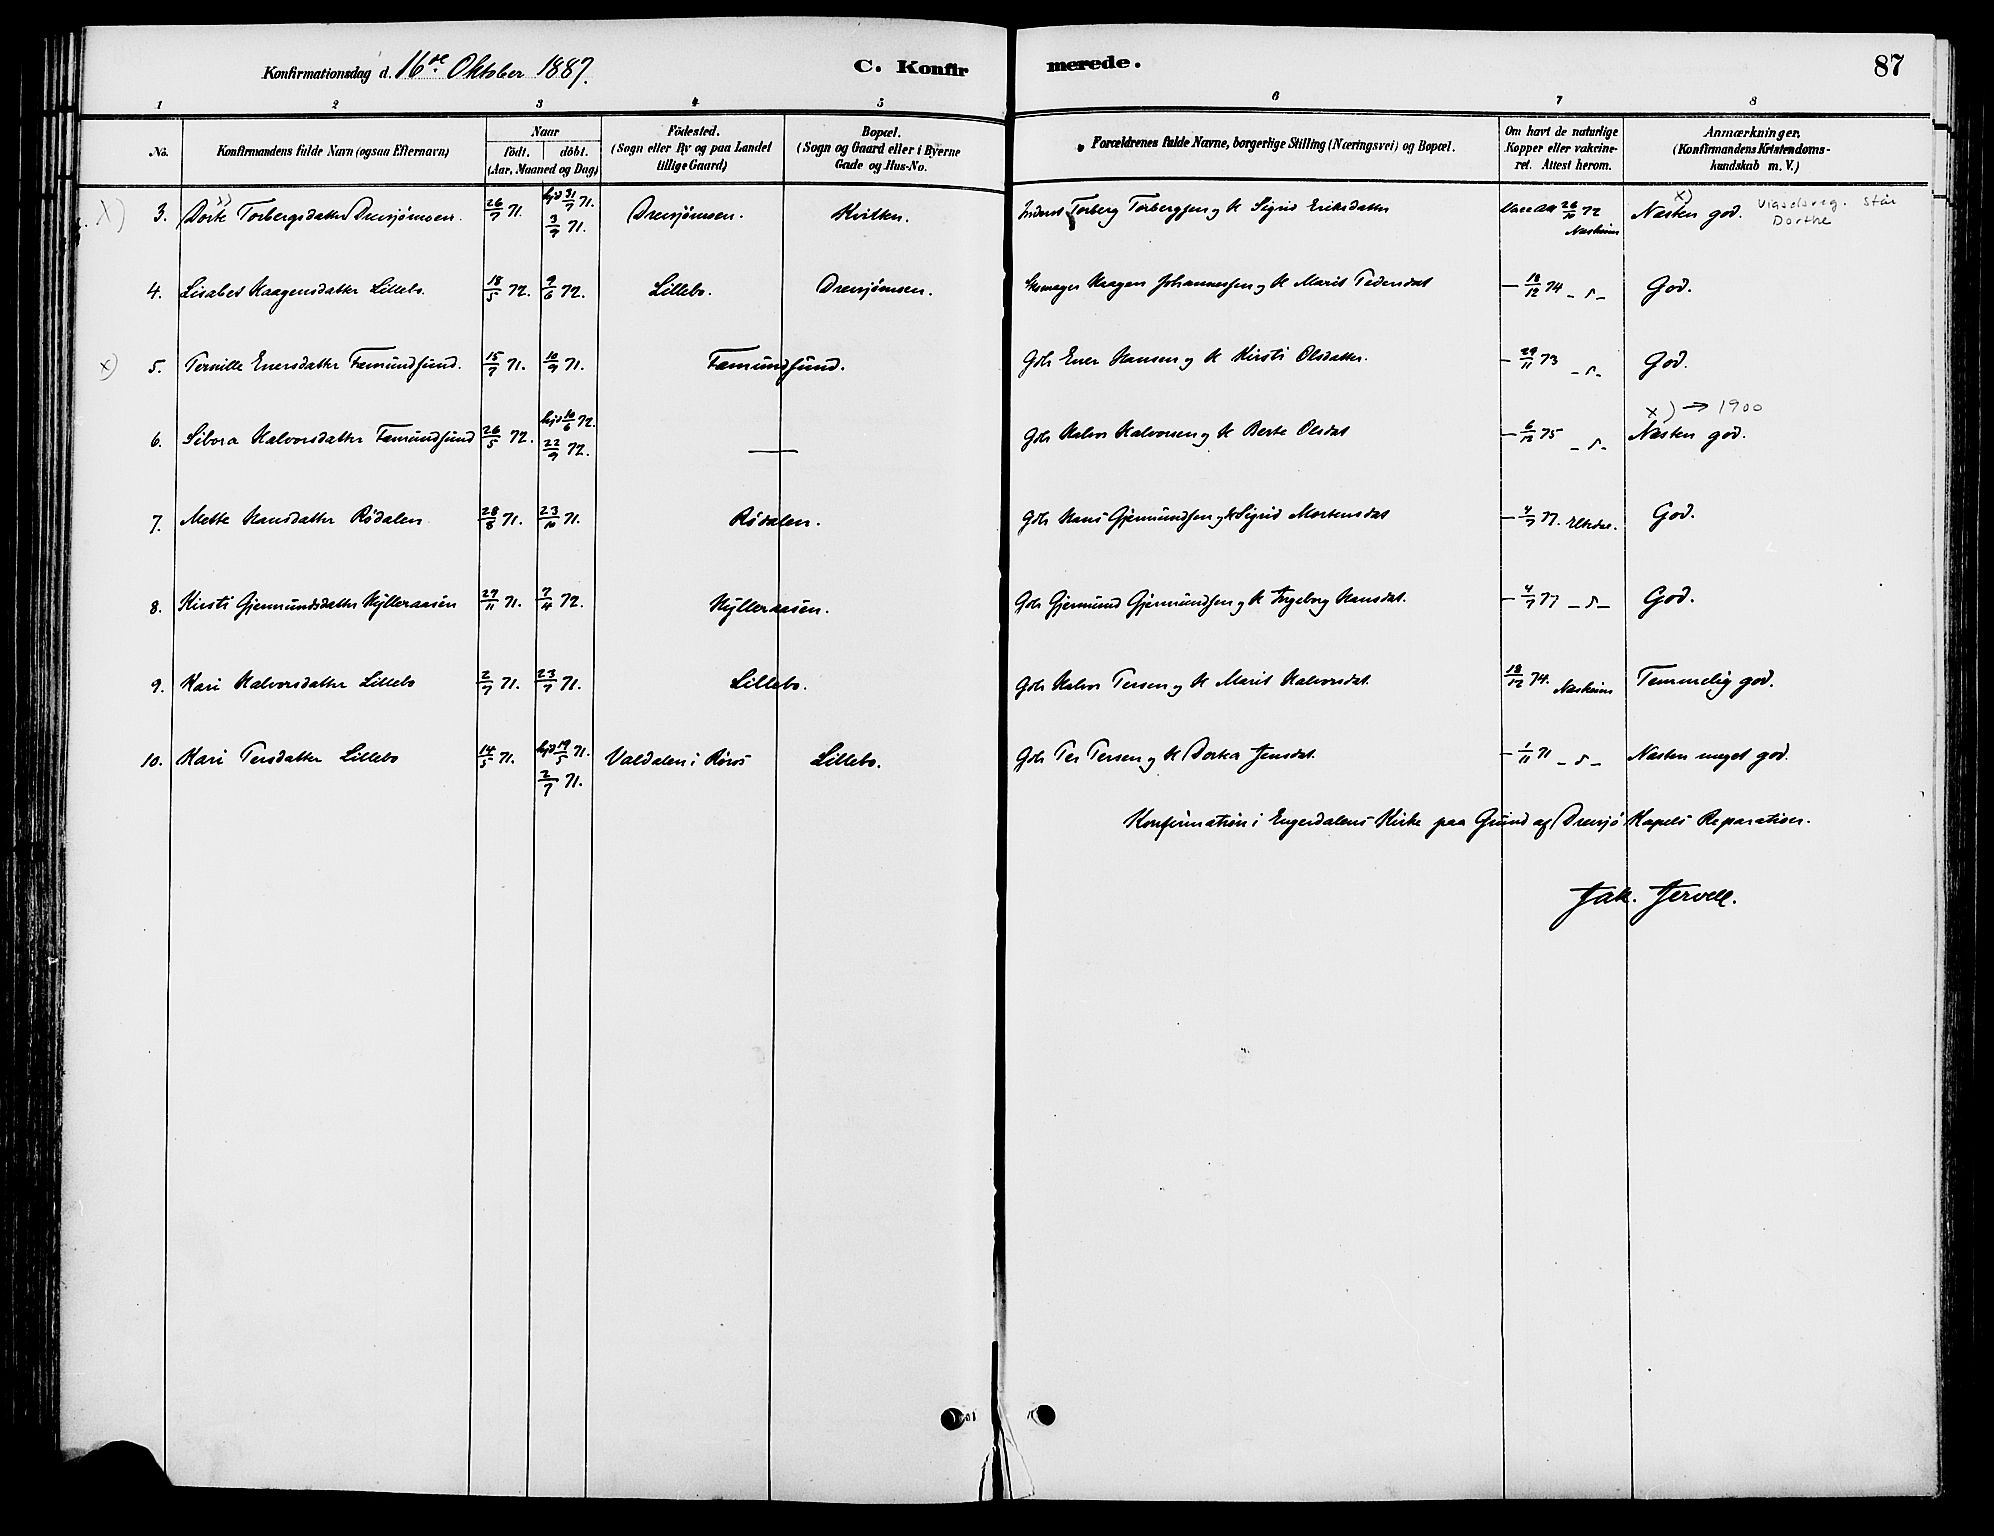 Konfirmationsdag d. 16de Oktober 1887. C. Konfir merede. 87
1 2 3 4 5 6 7 8
No. Konfirmandens fulde Navn (ogsaa Efternavn) Naar født. døbt. (Aar, Maaned og Dag) Fødested. (Sogn eller By og paa Landet tillige Gaard) Bopæl. (Sogn og Gaard eller i Byerne Gade og Hus-No. Forældrenes fulde Navne, borgerlige Stilling (Næringsvei) og Bopæl. Om havt de naturlige Kopper eller vakcineret. Attest herom. Anmærkninger. (Konfirmandens Kristendomskundskab m. V.)
x) 3. Dorte Torbergsdatter Drevsjømoen. 26/7 71. hjd 31/7 71. 3/9 71. Drevsjømoen. Kvilten. Inderst Torberg Torbergsen og K Sigrid Eriksdatter Vacc att 26/10 72 Næsheim x) Næsten god. Vigselsreg. står Dorthe
4. Lisabet Haagensdatter Lillebo. 18/5 72. 9/6 72. Lillebo. Drevsjømoen. Skomager Haagen Johannessen og K Marit Pedersdat – 18/12 74 – d – God.
x) 5. Pernille Enersdatter Fæmundsund. 15/7 71. 10/9 71. Fæmundsund. Gbr Ener Hansen og K Kirsti Olsdatter. – 29/11 73 – d – God.
6. Sibora Halvorsdatter Fæmundsund 26/5 72. hjd 10/6 72. 22/9 72. — Gbr Halvor Halvorsen og K Berte Olsdat – 6/12 75 – d – x) → 1900 Næsten god.
7. Mette Hansdatter Rødalen 28/8 71. 23/10 71. Rødalen. Gbr Hans Gjermundsen og K Sigrid Mortensdat – 4/7 77. God.
8. Kirsti Gjermundsdatter Hylleraasen 27/11 71. 7/4 72. Hylleraasen. Gbr Gjermund Gjermundsen og K Ingeborg Hansdat. – 4/7 77 – d – God.
9. Kari Halvorsdatter Lillebo 2/7 71. 23/7 71. Lillebo. Gbr Halvor Persen og K Marit Halvorsdat. 18/12 74. Næsheim Temmelig god.
10. Kari Persdatter Lillebo 14/5 71. hjd 19/5 71. 2/7 71. Valdalen i Røros Lillebo. Gbr Per Persen og K Dorka Jensdat. – 1/11 71 – d – Næsten meget god.
Konfirmation i Engerdalens Kirke paa Grund af Drevsjø Kapels Reparation.
Jak. Jervell.